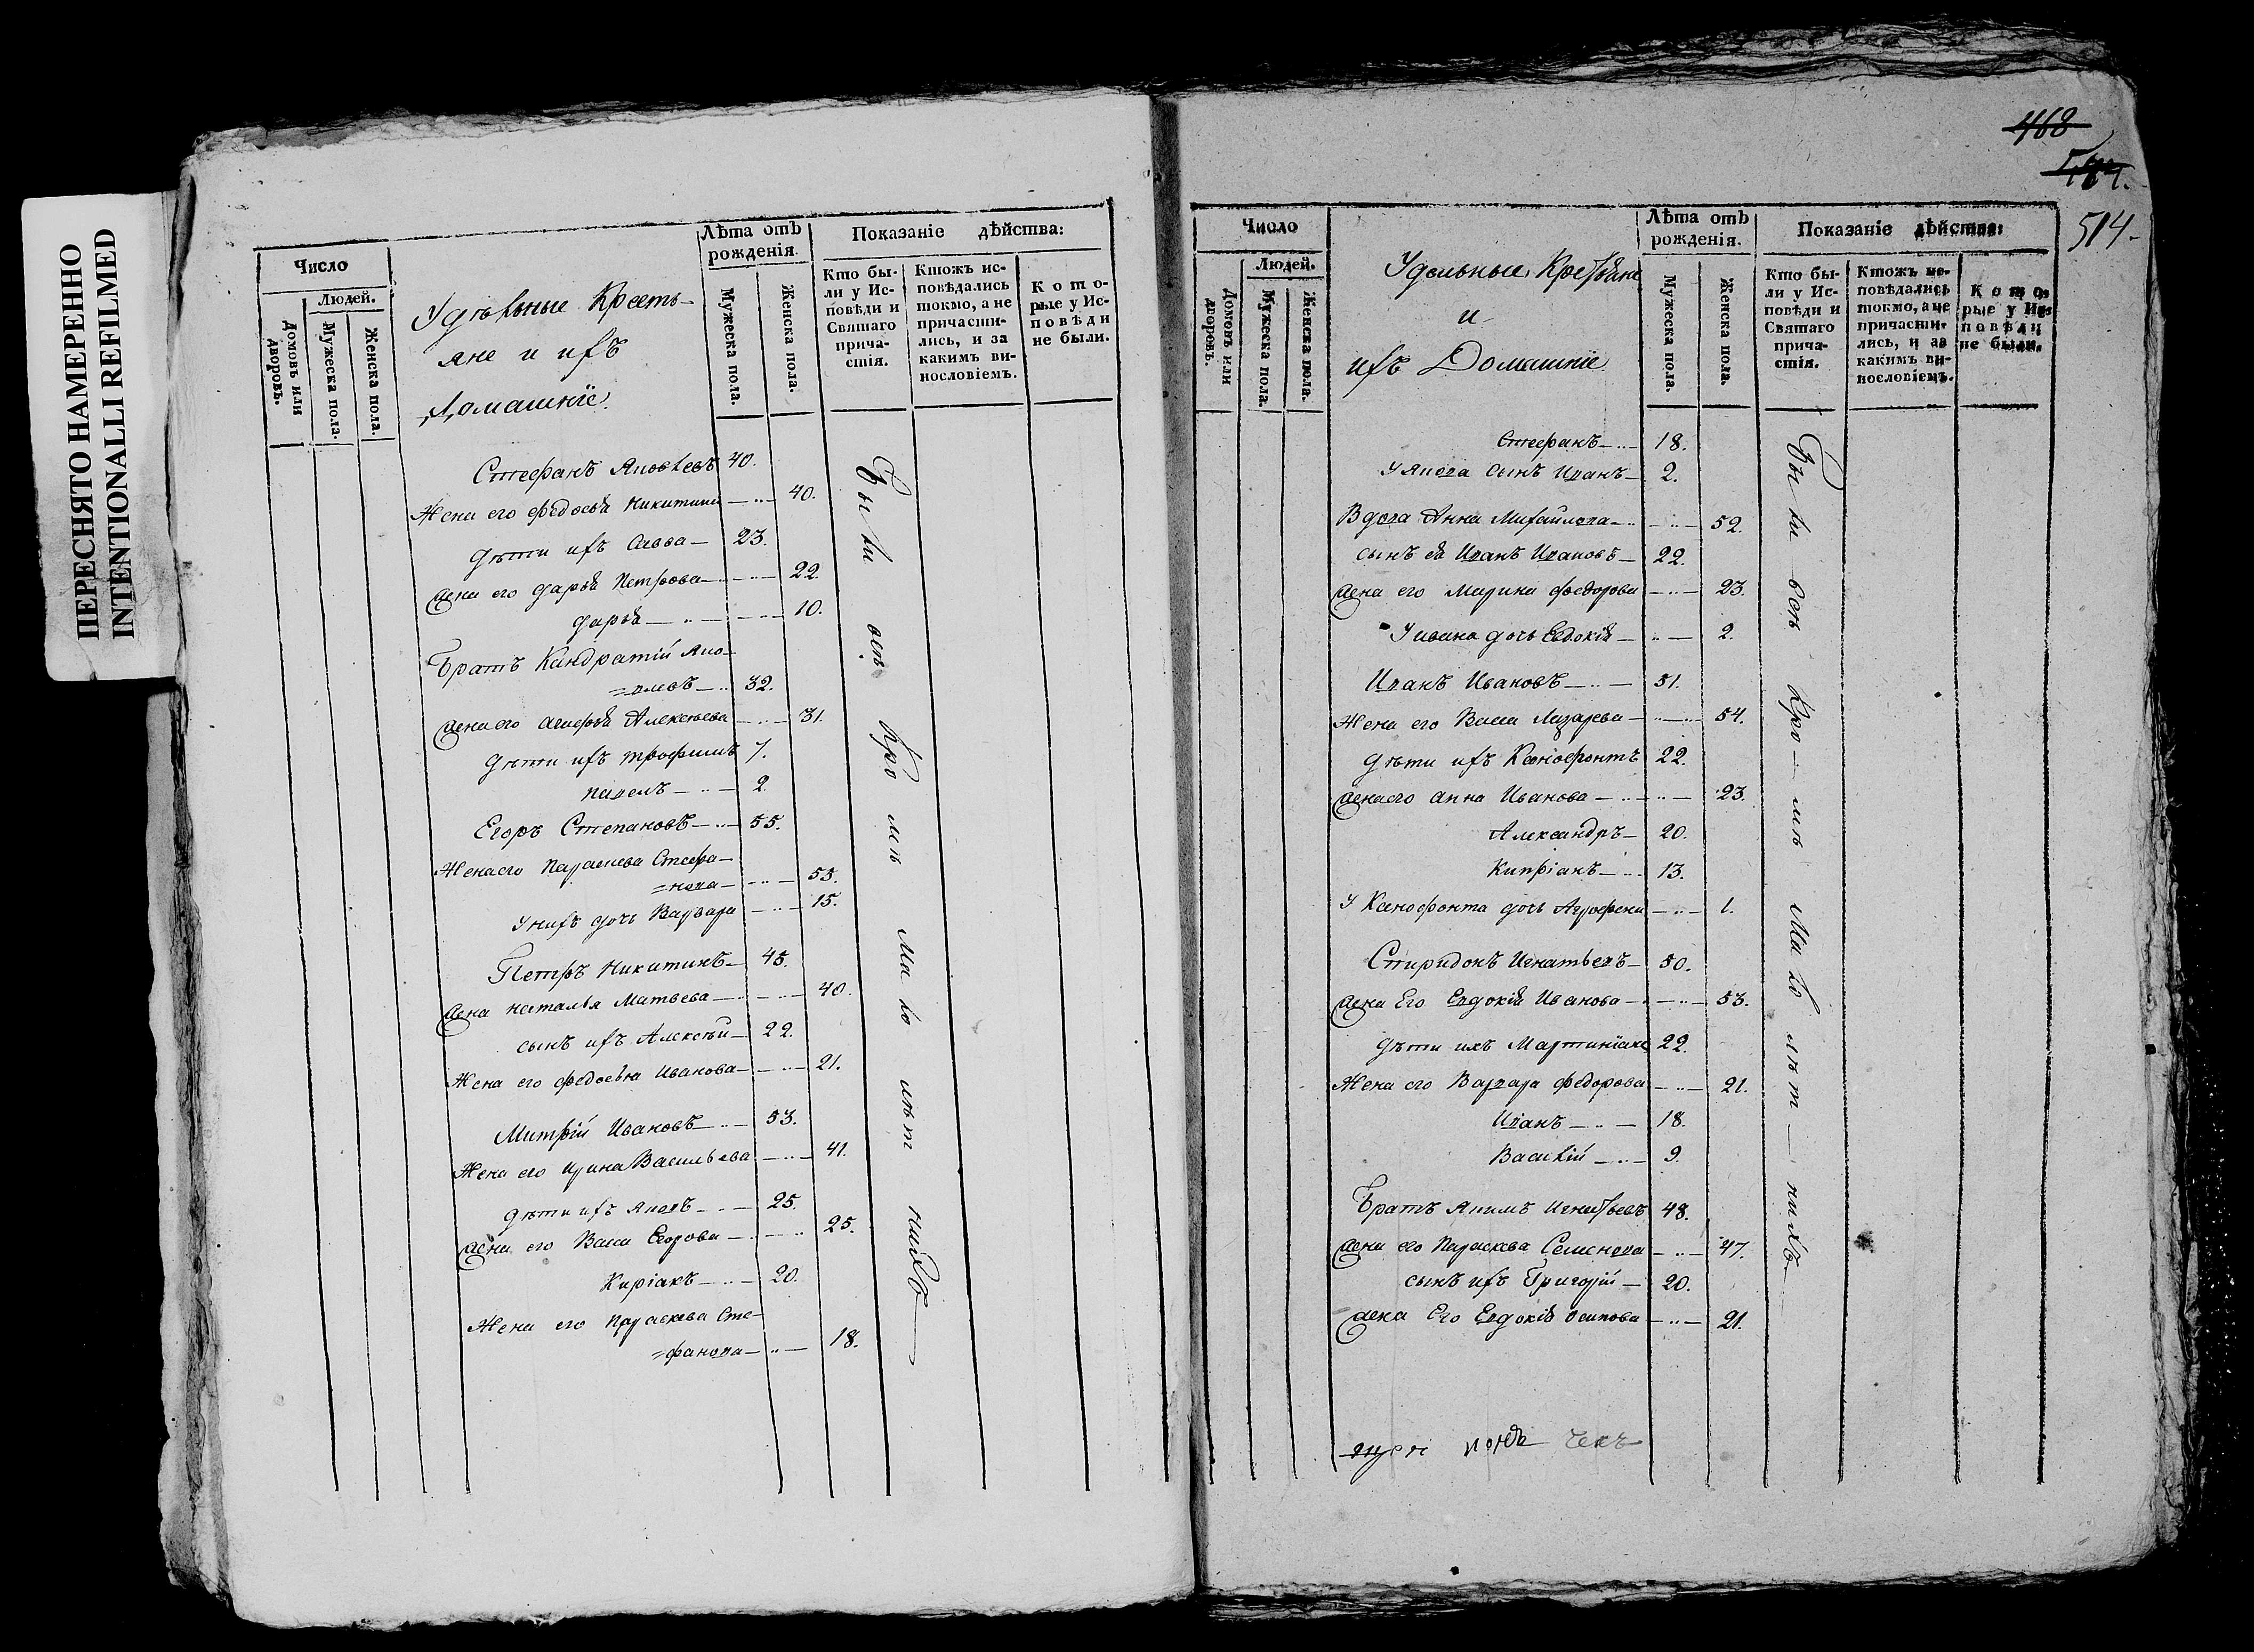 ПЕРЕСНЯТО НАМЕРЕННО
INTENTIONALLI REFILMED
Число
Людей.
Домовъ или дворовъ.
Мужеска пола.
Женска пола.
Удѣльные Кресть-
яне и ихъ
Домашніе.
Лѣта отъ
рожденія.
Мужеска пола.
Женска пола.
Показаніе дѣйства:
Кто бы-
ли у Ис-
повѣди и
Святаго
прича-
стія.
Ктожъ ис-
повѣдались
токмо, а не
причасти-
лись, и за
какимъ ви-
нословіемъ.
Кото-
рые у Ис-
повѣди
не были.
Стефанъ Яковлевъ 40.
Жена его Федосья Никитина — 40.
Дѣти ихъ Савва — 23.
Жена его Дарья Петрова — 22.
Дарья — 10.
Братъ Кандратій Яко-
=влевъ — 32.
Жена его Агафья Алексѣева — 31.
Дѣти ихъ Трофимъ 7.
Павелъ — 2.
Егоръ Степановъ — 55.
Жена его Параскева Стефа-
=нова — 55.
У нихъ дочь Варвара — 15.
Петръ Никитинъ — 45.
Жена Наталья Матвева — 40.
сынъ ихъ Алексѣй — 22.
Жена его Федосья Иванова — 21.
Митрій Ивановъ — 53.
Жена его Ирина Васильева — 41.
Дѣти ихъ Яковъ — 25.
Жена его Васса Егорова — 25.
Киріакъ — 20.
Жена его Параскева Сте-
=фанова — 18.
Были всѣ кромѣ малолѣтнихъ
468
514.
Число
Людей.
Домовъ или дворовъ.
Мужеска пола.
Женска пола.
Удельные Крестьяне
и
ихъ Домашніе
Лѣта отъ
рожденія.
Мужеска пола.
Женска пола.
Показаніе дѣйства:
Кто бы-
ли у Ис-
повѣди и
Святаго
прича-
стія.
Ктожъ ис-
повѣдались
токмо, а не
причасти-
лись, и за
какимъ ви-
нословіемъ.
Кото-
рые у Ис-
повѣди
не были.
Стефанъ — 18.
У Якова сынъ Иванъ — 2.
Вдова Анна Михайлова — 52.
сынъ ея Иванъ Ивановъ — 22.
Жена его Марина Федорова — 23.
У Ивана дочь Евдокія — 2.
Иванъ Ивановъ — 51.
Жена его Васса Лазарева — 54.
Дѣти ихъ Ксенофонтъ 22.
Жена его Анна Иванова — 23.
Александръ — 20.
Кипріанъ — 13.
У Ксенофонта дочь Агрофена — 1.
Спиридонъ Игнатьевъ — 50.
Жена Его Евдокія Иванова — 53.
Дѣти ихъ Мартиніанъ 22.
Жена его Варвара Федорова — 21.
Иванъ — 18.
Василій — 9.
Братъ Якимъ Игнатьевъ 48.
Жена его Параскева Семенова — 47.
сынъ ихъ Григорій — 20.
Жена Его Евдокія Осипова — 21.
Были всѣ кромѣ Малолѣтнихъ